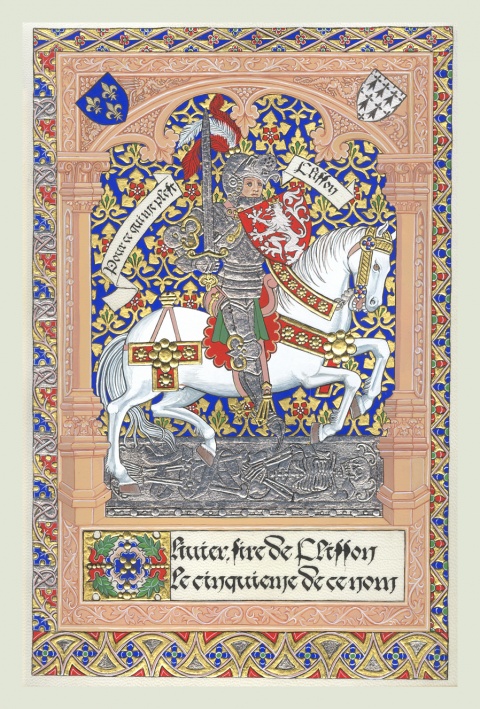 Pour ce qui me plest
Clisson
Olivier, sire de Clisson
Le cinquieme de ce nom